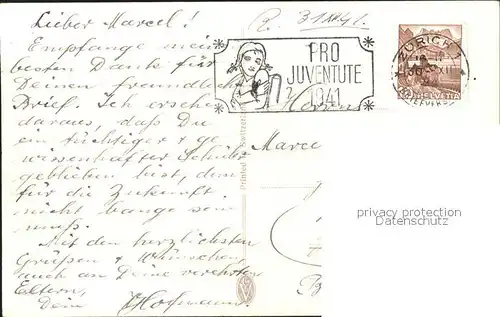 Lieber Marcel!
Empfange mein
besten Dank für
Deinen freundlich
Brief. Ich ersehe
daraus, daß Du
ein tüchtiger + ge
wissenhafter Schüler
geblieben bist, dem
für die Zukunft
nicht bange sein
muß.
Mit den herzlichsten
Grüßen + Wünschen,
auch an Deine verehrten
Eltern,
Dein Hofmann
R. 31.XII.41.
PRO
JUVENTUTE
1941
ZÜRICH 1
HELVETIA
Printed in Switzerland
Herrn
Marce
privacy protection
Datenschutz